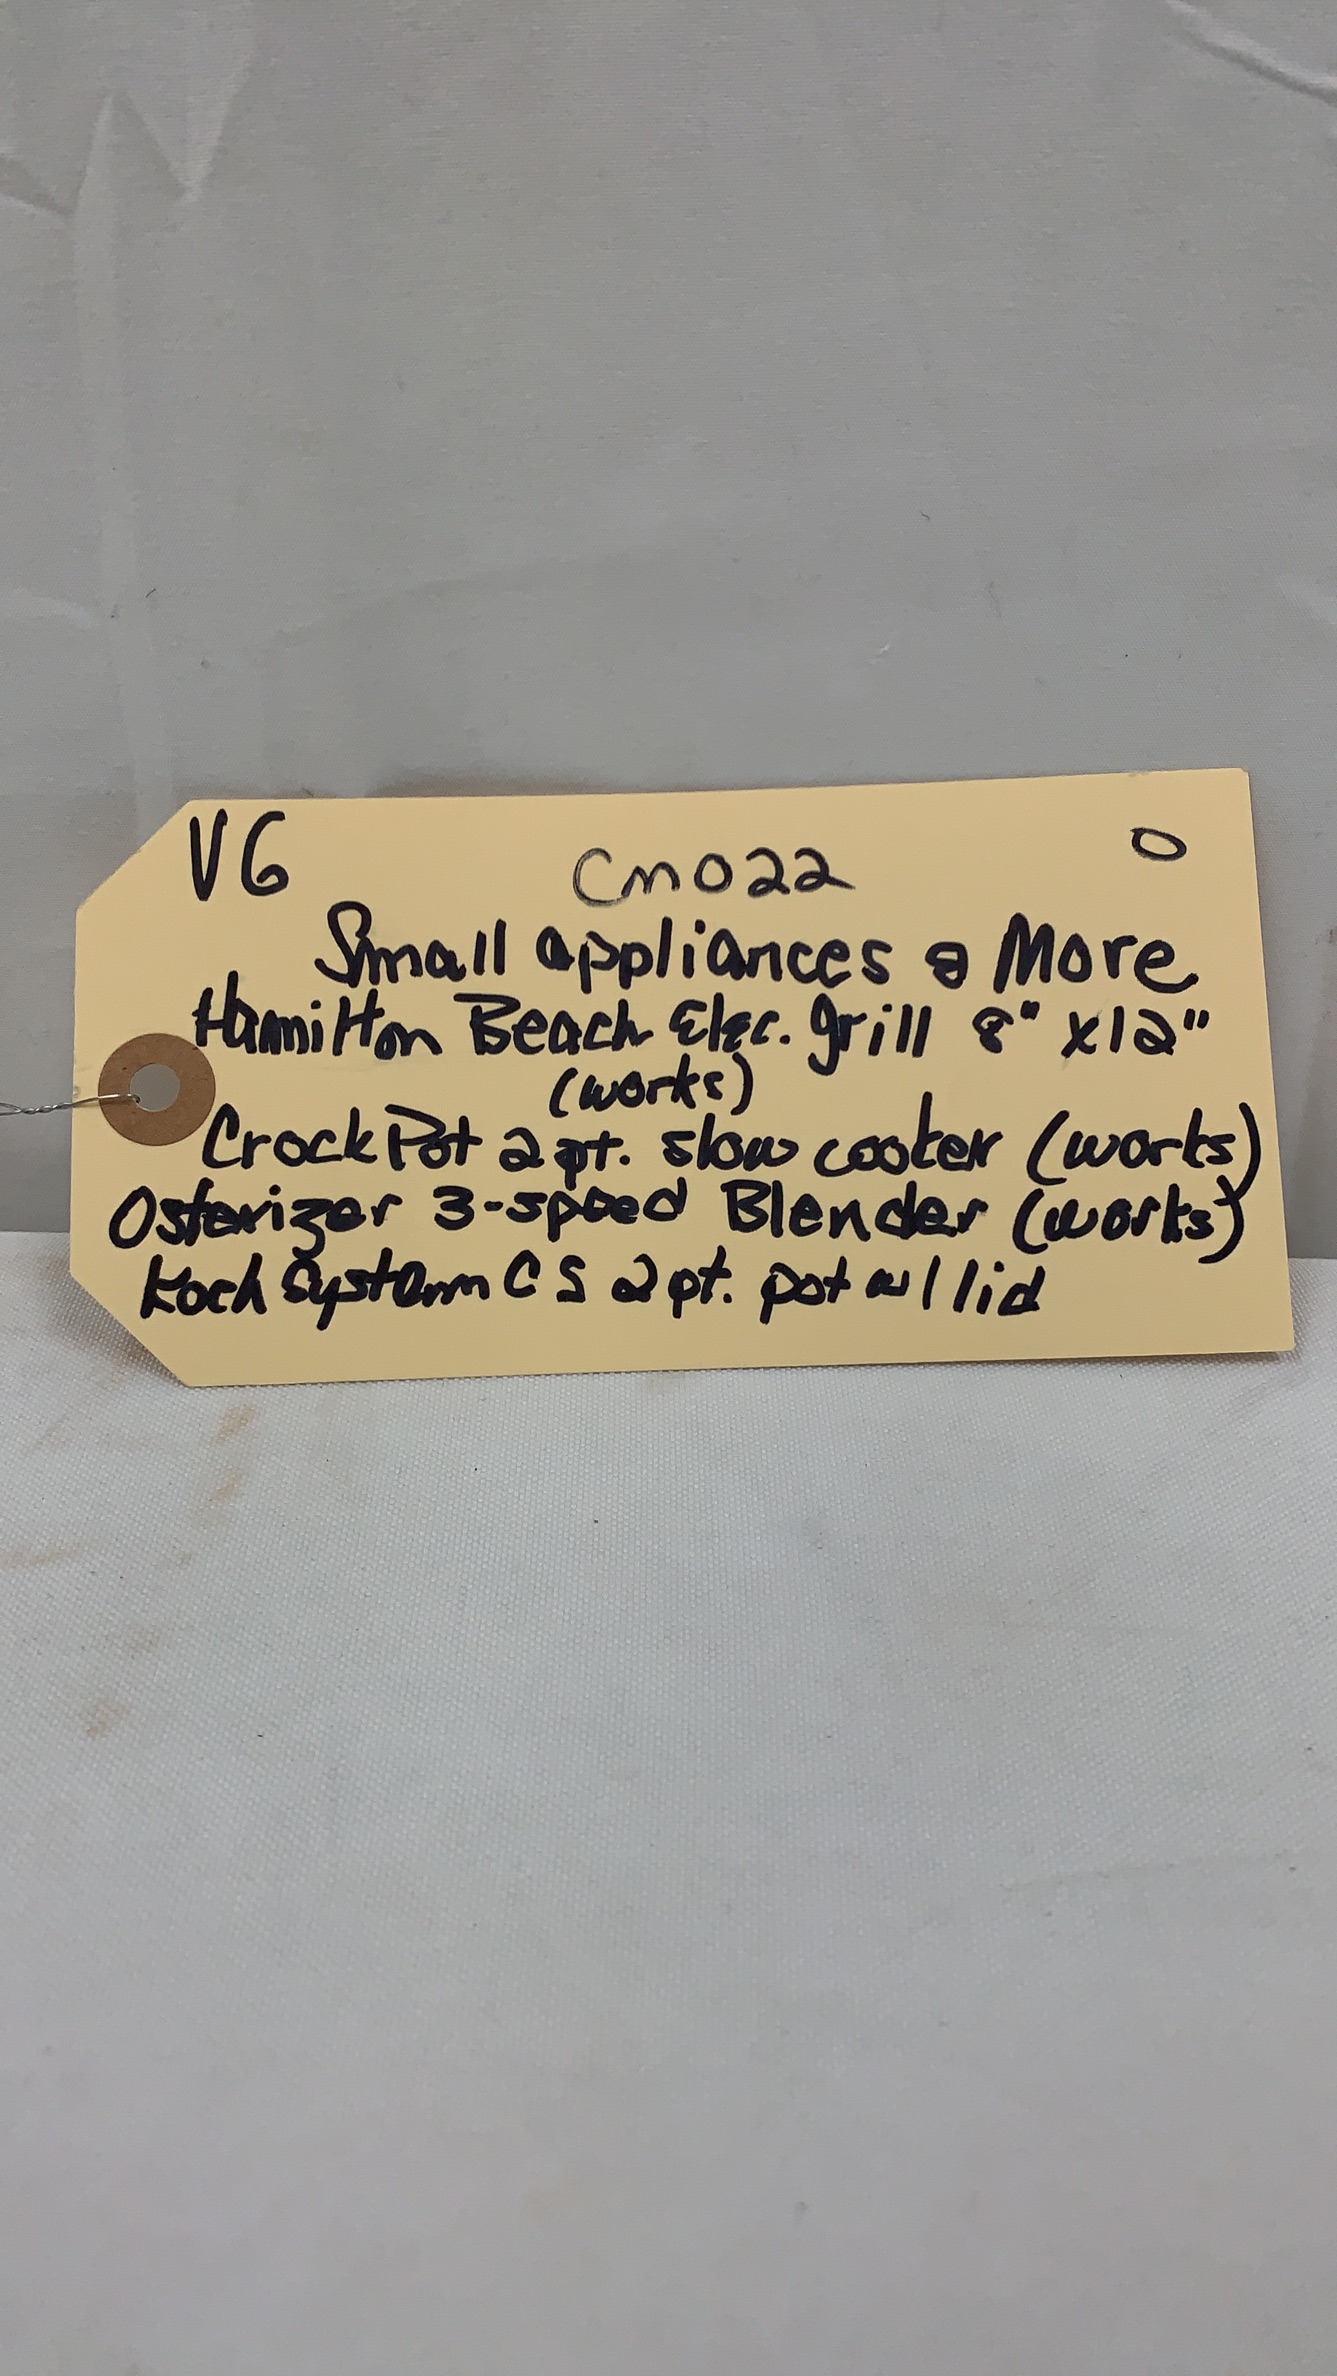 VG CM022 0
Small appliances & More
Hamilton Beach Elec. grill 8" x12"
(works)
CrockPot 2 pt. slow cooker (works)
Osterizer 3-speed Blender (works)
Koch System CS 2 pt. pot w/ lid